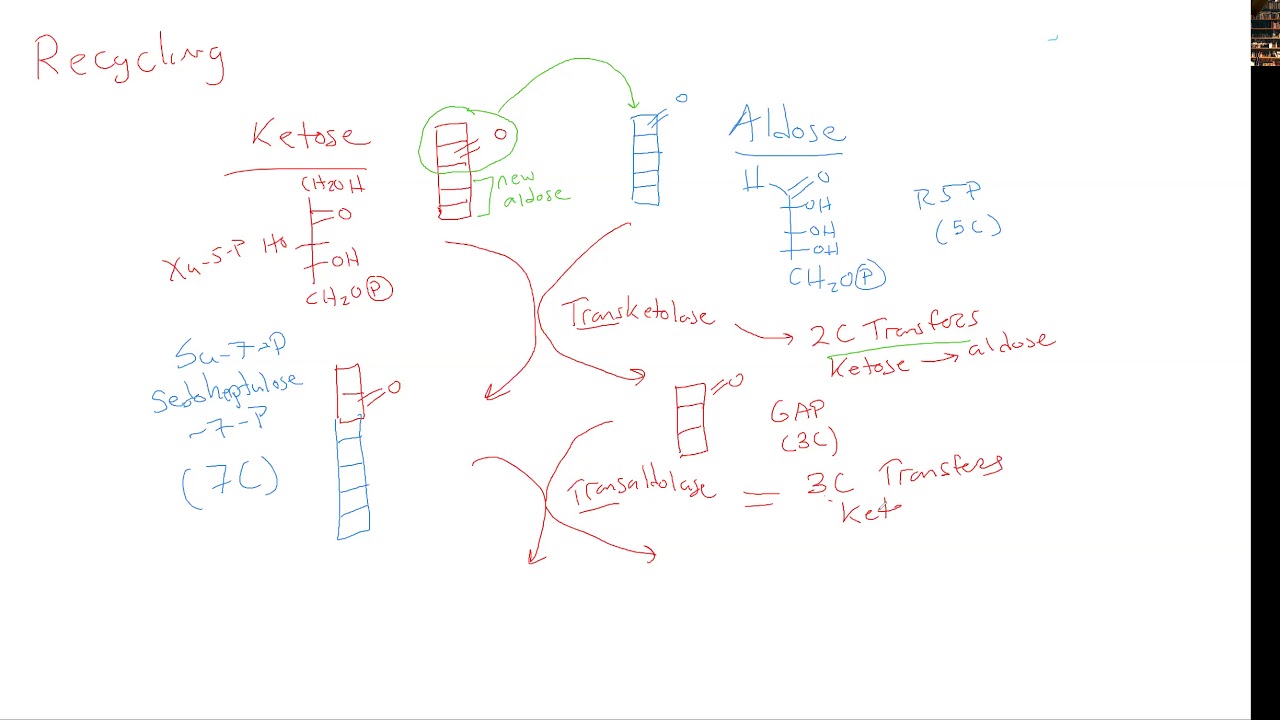 Recycling
Ketose
O
new
aldose
O
Aldose
CH2OH
O
Xu-5-P HO
OH
CH2O P
H O
OH
OH
OH
CH2O P
R5P
(5C)
Transketolase
2C Transfers
Ketose → aldose
Su-7-P
Sedoheptulose
-7-P
(7C)
O
O
GAP
(3C)
Transaldolase = 3C Transfers
Keto